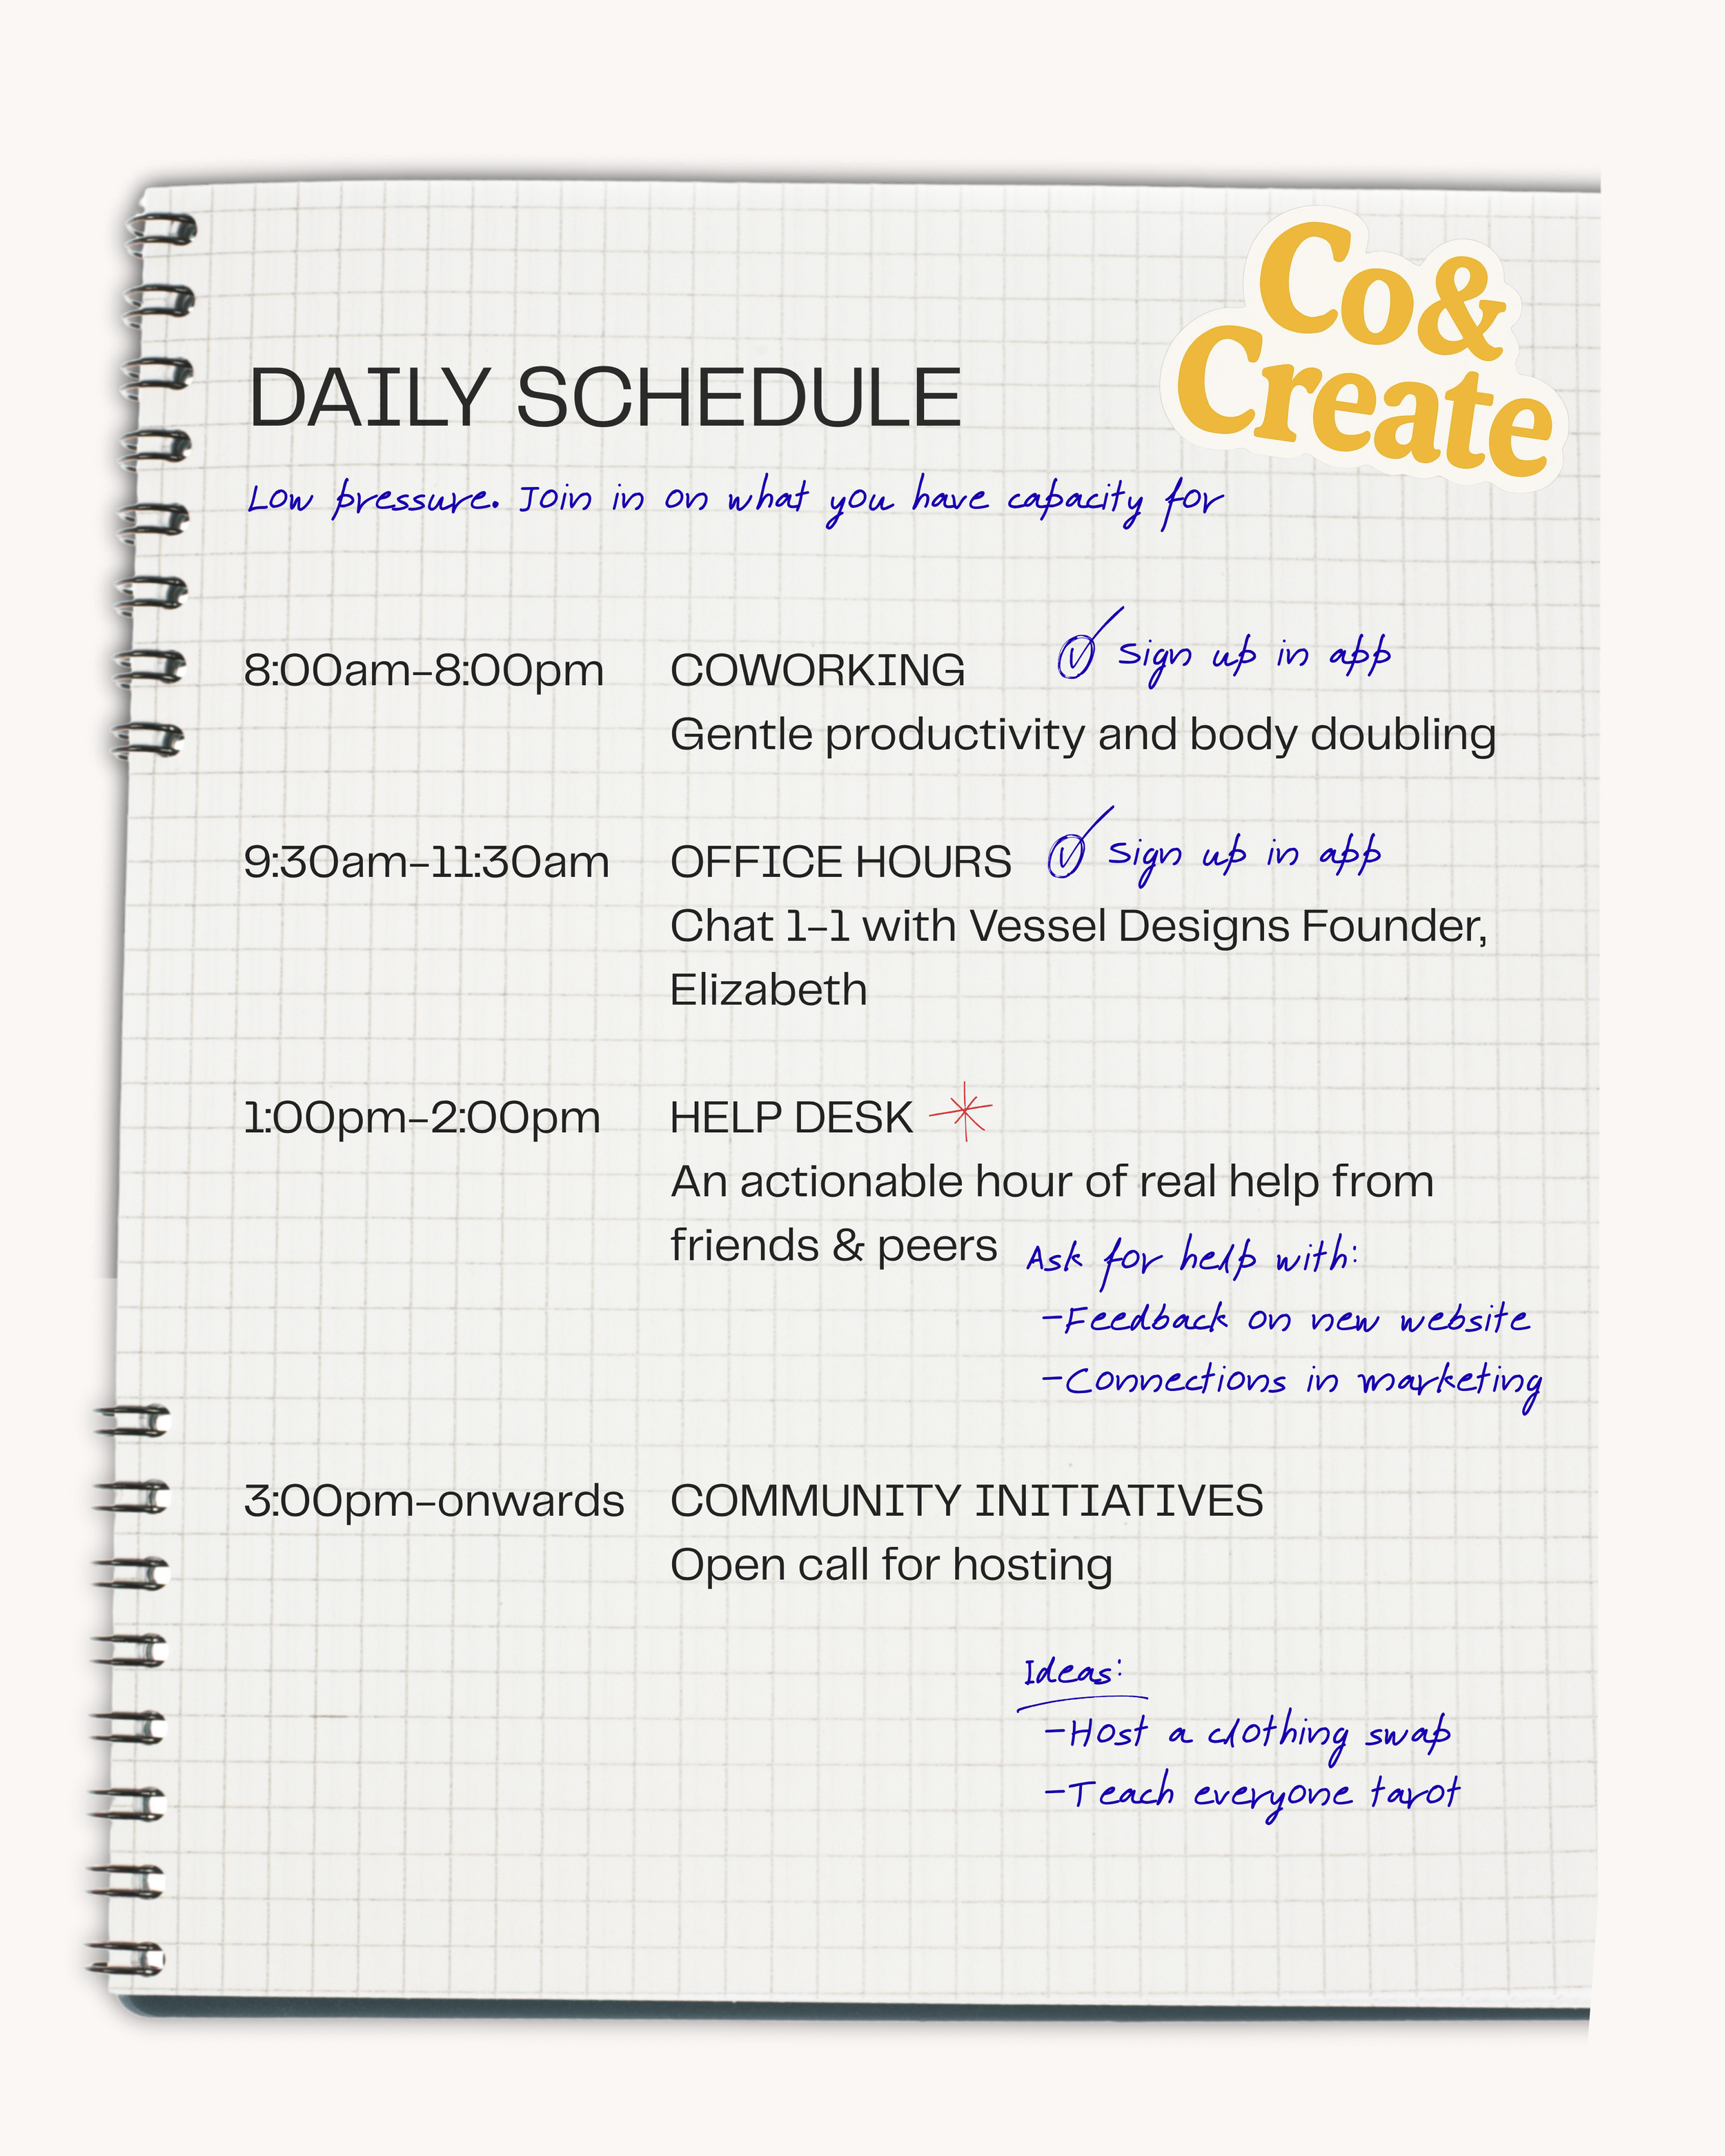 Co&
Create
DAILY SCHEDULE
Low pressure. Join in on what you have capacity for
8:00am-8:00pm COWORKING Sign up in app
Gentle productivity and body doubling
9:30am-11:30am OFFICE HOURS Sign up in app
Chat 1-1 with Vessel Designs Founder,
Elizabeth
1:00pm-2:00pm HELP DESK
An actionable hour of real help from
friends & peers
Ask for help with:
-Feedback on new website
-Connections in marketing
3:00pm-onwards COMMUNITY INITIATIVES
Open call for hosting
Ideas:
-Host a clothing swap
-Teach everyone tarot